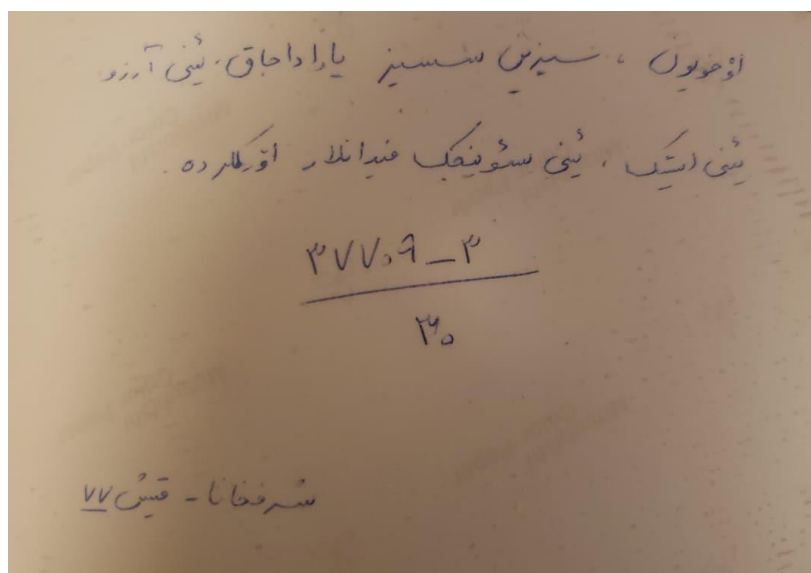 اوْخویون ، سیزین سسسیز یاراداجاق، یئنی آرزو
یئنی ایستک ، یئنی سئوینجک فیدانلار اۆرکلرده
۳۷۷۰۹_۳
۳۰
شرفخانا - قیش ۷۷